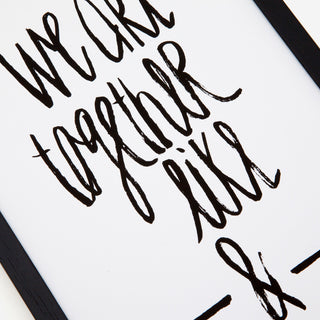 we are
together
like
_ & _